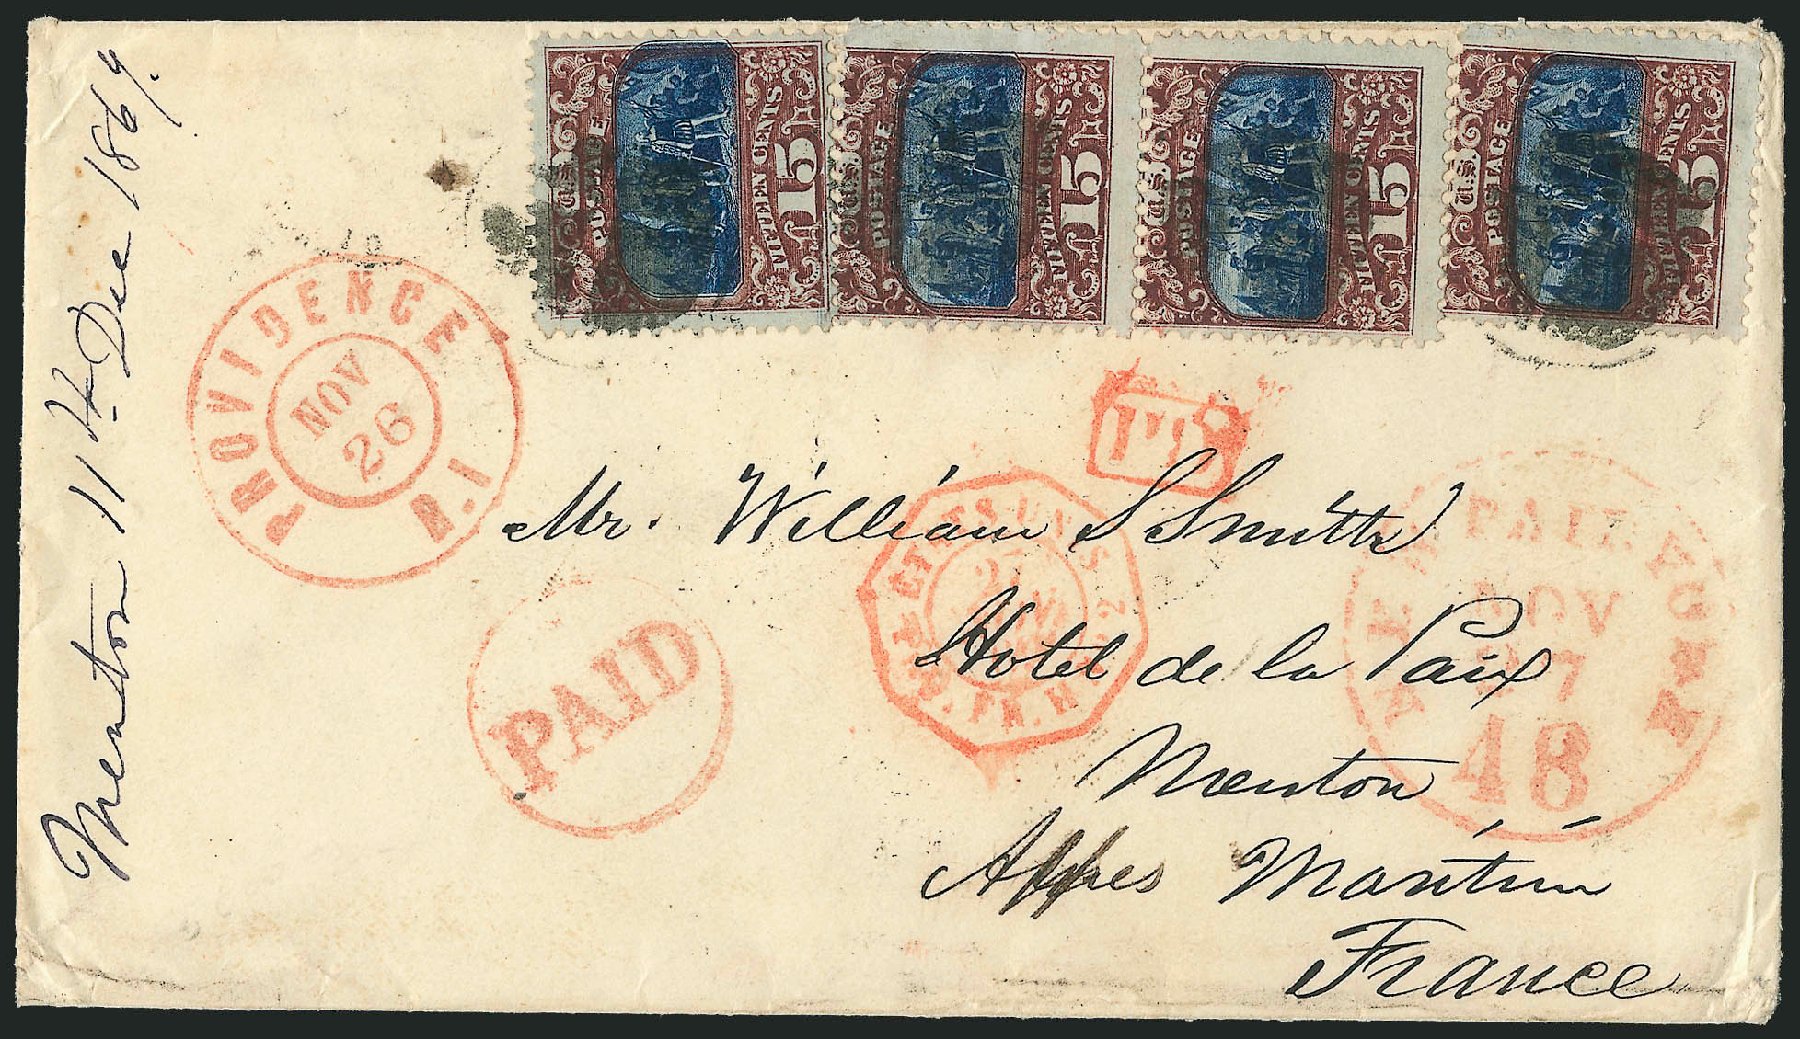 U.S. POSTAGE FIFTEEN CENTS 15
U.S. POSTAGE FIFTEEN CENTS 15
U.S. POSTAGE FIFTEEN CENTS 15
U.S. POSTAGE FIFTEEN CENTS 15
Menton 11th Dec 1869.
PROVIDENCE R.I
NOV
26
PAID
PD
ETATS-UNIS
NEW PAID YORK
NOV
27
48
Mr. William S Smith
Hotel de la Paix
Menton
Alpes Maritim
France